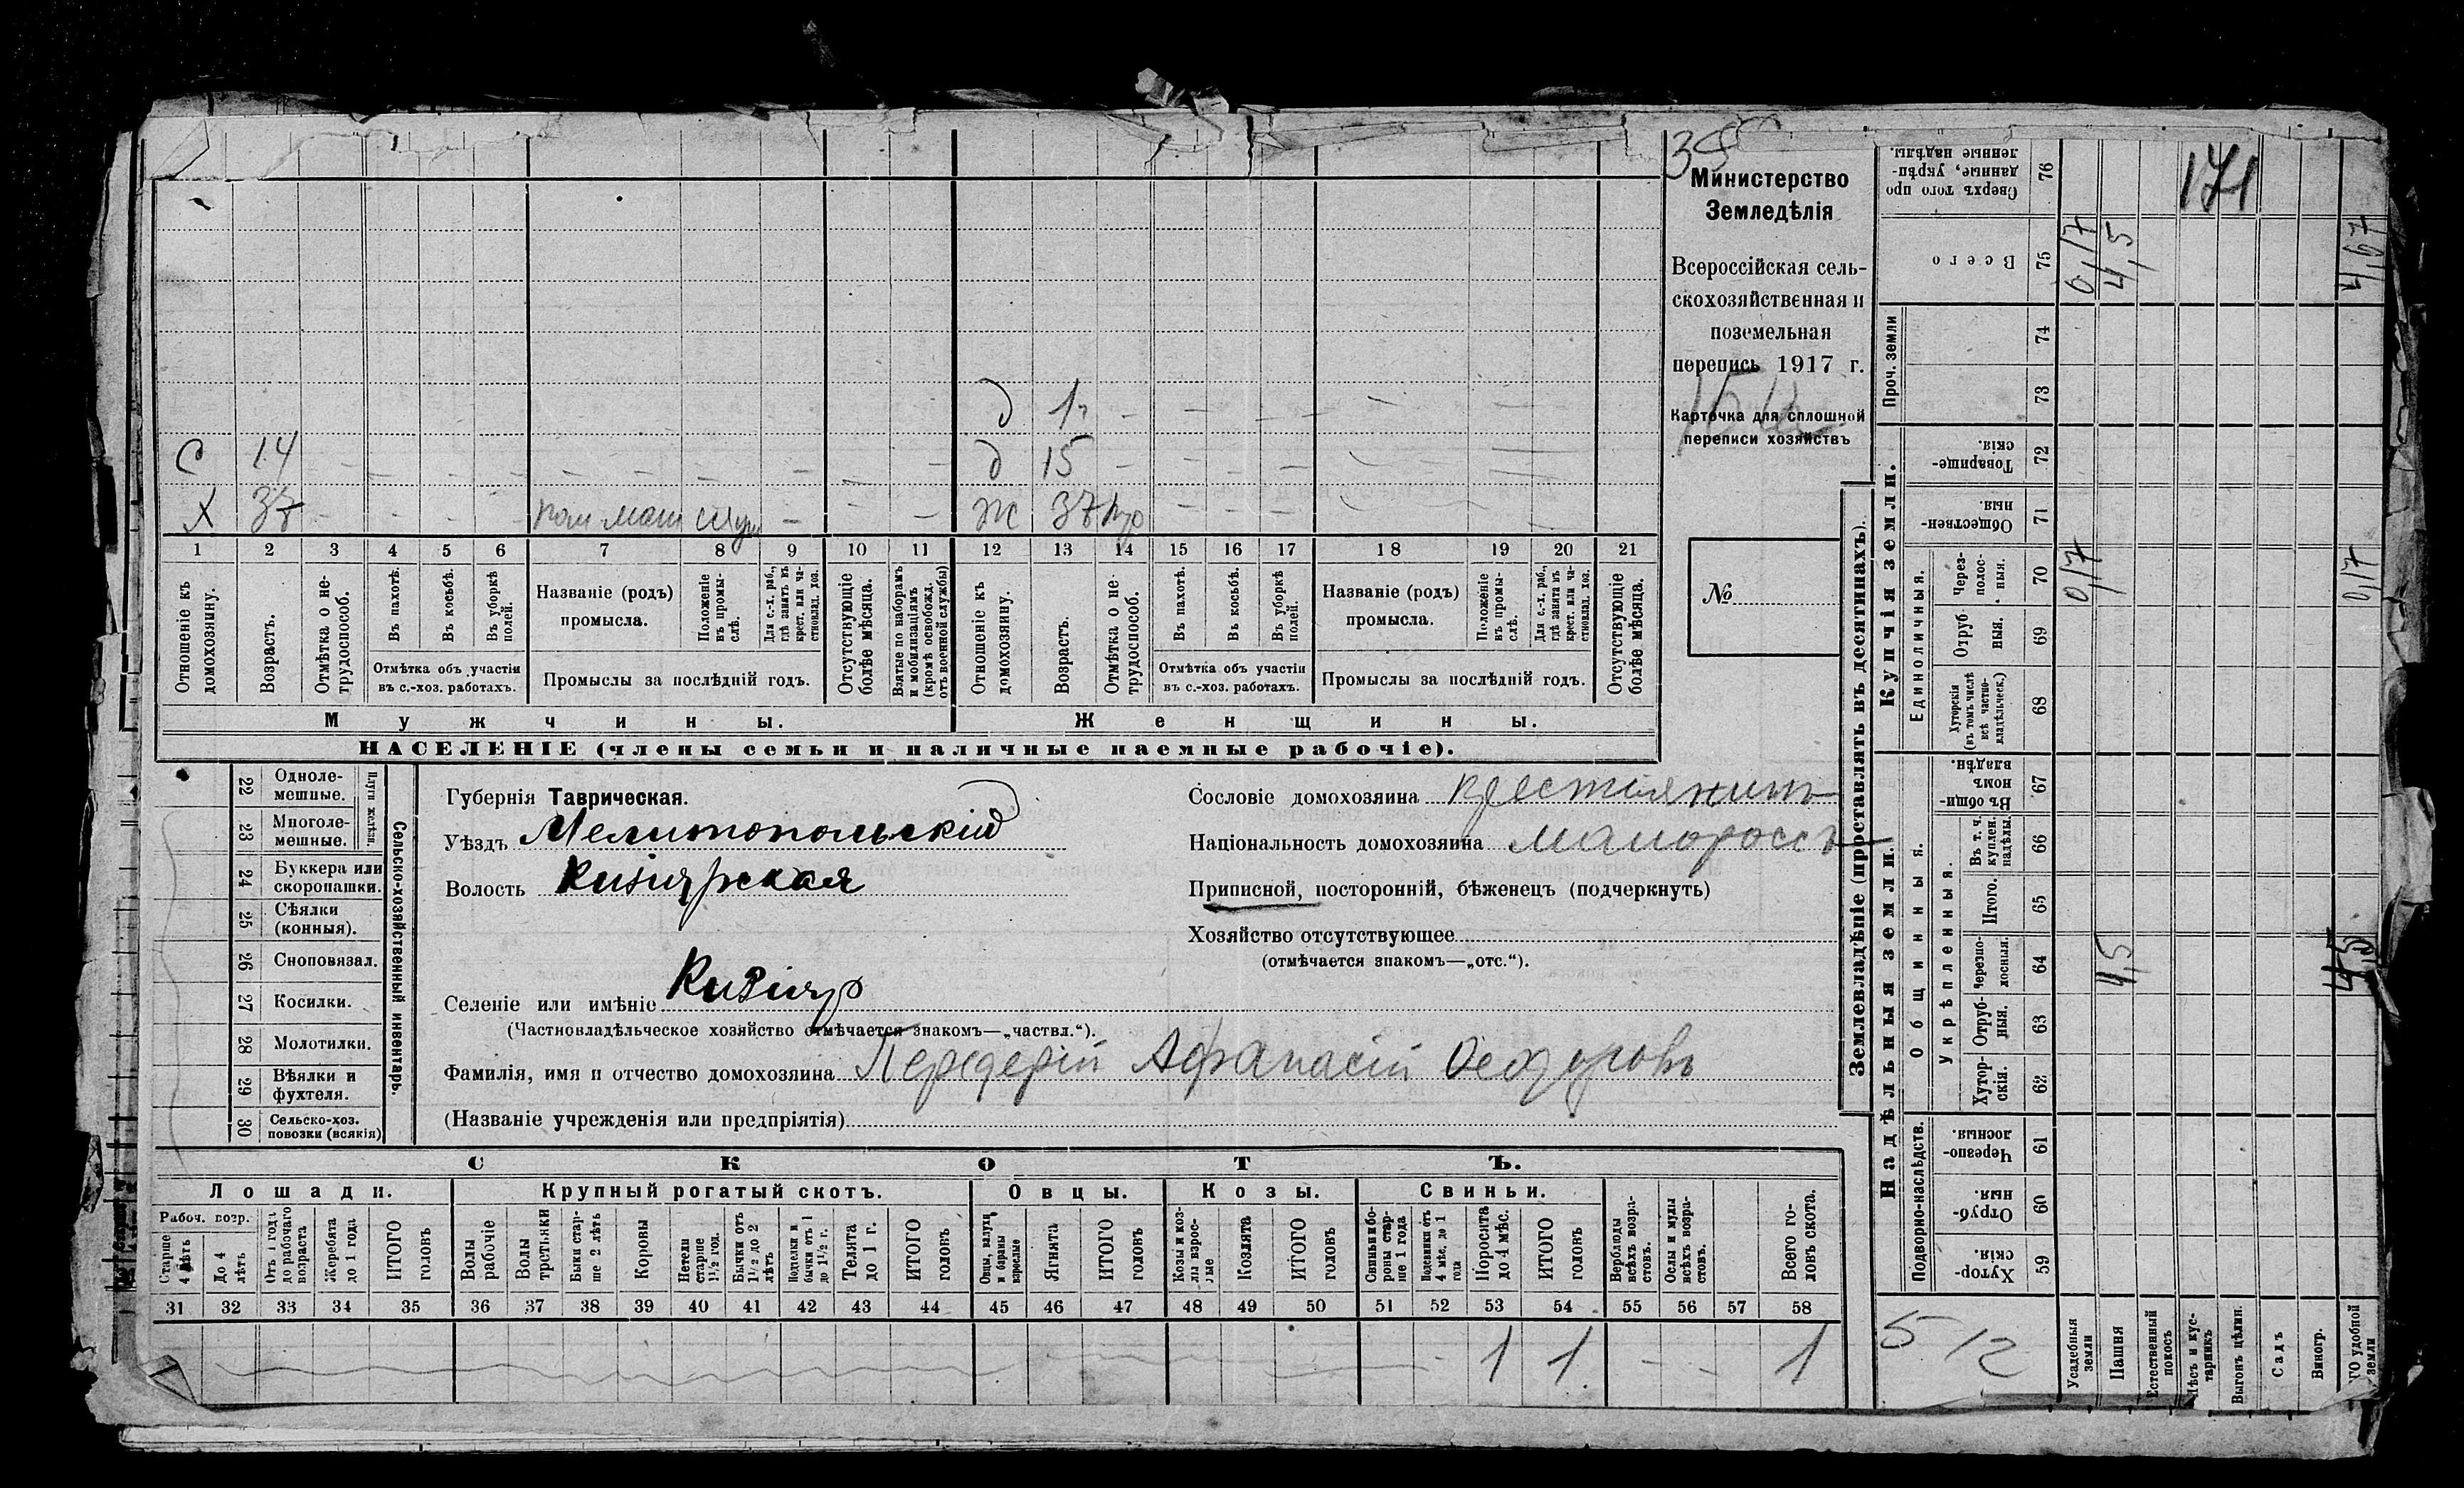 35
171
Министерство
Земледѣлія
Всероссійская сель-
скохозяйственная и
поземельная
перепись 1917 г.
Карточка для сплошной
переписи хозяйствъ
№
д 1 - - - - - - - -
С 14 - - - - - - - - - - д 15 - - - - - - - -
Х 37 - - - - - - - Ж 37 - - - - - - -
1 2 3 4 5 6 7 8 9 10 11 12 13 14 15 16 17 18 19 20 21
Отношеніе къ домохозяину.
Возрастъ.
Отмѣтка о не-трудоспособ.
Въ пахотѣ.
Въ косьбѣ.
Въ уборкѣ полей.
Отмѣтка объ участіи
въ с.-хоз. работахъ.
Названіе (родъ)
промысла.
Положеніе въ промы-слѣ.
Для с.-х. раб., гдѣ занятъ въ крест. или ча-стновлад. хоз.
Промыслы за послѣдній годъ.
Отсутствующіе болѣе мѣсяца.
Взятые по наборамъ и мобилизаціямъ (кромѣ освобожд. отъ военной службы)
Отношеніе къ домохозяину.
Возрастъ.
Отмѣтка о не-трудоспособ.
Въ пахотѣ.
Въ косьбѣ.
Въ уборкѣ полей.
Отмѣтка объ участіи
въ с.-хоз. работахъ.
Названіе (родъ)
промысла.
Положеніе въ промы-слѣ.
Для с.-х. раб., гдѣ занята въ крест. или ча-стновлад. хоз.
Промыслы за послѣдній годъ.
Отсутствующіе болѣе мѣсяца.
Мужчины. Женщины.
НАСЕЛЕНІЕ (члены семьи и наличные наемные рабочіе).
22 Одноле-мешные.
23 Многоле-мешные.
Плуги желѣзн.
24 Буккера или скоропашки.
25 Сѣялки (конныя).
26 Сноповязал.
27 Косилки.
28 Молотилки.
29 Вѣялки и фухтеля.
30 Сельско-хоз. повозки (всякія)
Сельско-хозяйственный инвентарь.
Губернія Таврическая.
Уѣздъ Мелитопольскій
Волость Кизіярская
Селеніе или имѣніе Кизіяръ
(Частновладѣльческое хозяйство отмѣчается знакомъ—„частвл.“).
Фамилія, имя и отчество домохозяина Передерій Афанасій Феодоровъ
(Названіе учрежденія или предпріятія)
Сословіе домохозяина крестьянинъ
Національность домохозяина малороссъ
Приписной, посторонній, бѣженецъ (подчеркнуть)
Хозяйство отсутствующее
(отмѣчается знакомъ—„отс.“).
СКОТЪ.
Лошади. Крупный рогатый скотъ. Овцы. Козы. Свиньи.
Рабоч. возр.
Старше 4 лѣтъ
До 4 лѣтъ
Отъ 1 года до рабочаго возраста
Жеребята до 1 года
ИТОГО головъ
Волы рабочіе
Волы третьяки
Быки стар-ше 2 лѣтъ
Коровы
Нетели старше 1½ год.
Бычки отъ 1½ до 2 лѣтъ
Подтелки и бычки отъ 1 до 1½ г.
Телята до 1 г.
ИТОГО головъ
Овцы, валухи и бараны взрослые
Ягнята
ИТОГО головъ
Козы и коз-лы взрос-лые
Козлята
ИТОГО головъ
Свиньи и бо-роны стар-ше 1 года
Подсвинки отъ 4 мѣс. до 1 года
Поросята до 4 мѣс.
ИТОГО головъ
Верблюды всѣхъ возра-стовъ.
Ослы и мулы всѣхъ возра-стовъ.
Всего го-ловъ скота.
31 32 33 34 35 36 37 38 39 40 41 42 43 44 45 46 47 48 49 50 51 52 53 54 55 56 57 58
1 1 - - 1
Землевладѣніе (проставлять въ десятинахъ).
Надѣльныя земли. Купчія земли. Проч. земли
Подворно-наслѣдств.
Общинныя.
Укрѣпленныя.
Единоличныя.
Хутор-скія. 59
Отруб-ныя. 60
Черезпо-лосныя. 61
Хутор-скія. 62
Отруб-ныя. 63
Черезпо-лосныя. 64
Итого. 65
Въ т. ч. куплен. надѣлы. 66
Въ общи-номъ владѣн. 67
Хуторскія (въ томъ числѣ всѣ частно-владѣльческ.) 68
Отруб-ныя. 69
Через-полос-ныя. 70
Обществен-ныя. 71
Товарище-скія. 72
73
74
Всего 75
Сверхъ того про-данные, укрѣп-ленные надѣлы. 76
Усадебныя земли 0,17 0,17
Пашня 4,5 4,5
Естественный покосъ
Лѣсъ и кус-тарникъ
Выгонъ цѣлин.
Садъ
Виногр.
ГО удобной земли 4,5 0,17 4,67
5/2